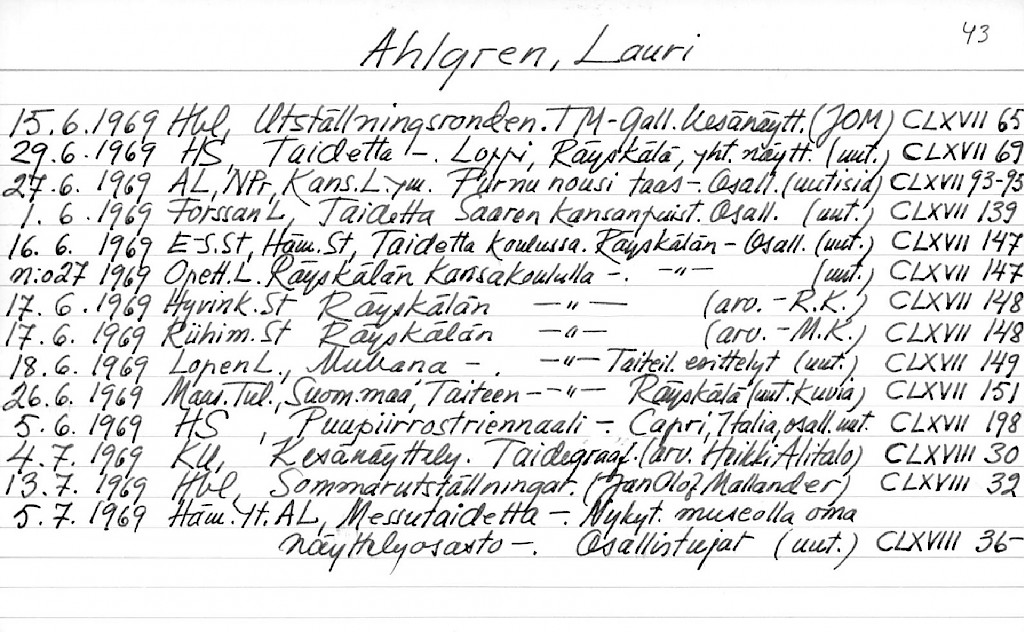 43
Ahlgren, Lauri
15.6.1969 Hbl, Utställningsronden. TM-Gall. Kesänäytt. (JOM) CLXVII 65
29.6.1969 HS, Taidetta -. Loppi, Räyskälä, yht. näytt. (uut.) CLXVII 69
27.6.1969 AL, NPr, Kans.L. ym. Purnu nousi taas-. Osall. (uutisia) CLXVII 93-95
1.6.1969 Forssan L, Taidetta Saaren kansanpuist. Osall. (uut.) CLXVII 139
16.6.1969 E-S.St, Häm.St, Taidetta koulussa. Räyskälän - Osall. (uut.) CLXVII 147
n:o27 1969 Opett.L. Räyskälän kansakoululla -. -"- (uut.) CLXVII 147
17.6.1969 Hyvink.St Räyskälän -"- (arv.-R.K.) CLXVII 148
17.6.1969 Riihim.St Räyskälän -"- (arv.-M.K.) CLXVII 148
18.6.1969 Lopen L., Mukana -. -"- Taiteil. erittelyt (uut.) CLXVII 149
26.6.1969 Maas.Tul., Suom.maa, Taiteen -"- Räyskälä (uut. Kuvia) CLXVII 151
5.6.1969 HS, Puupiirrostriennaali -. Capri, Italia, osall. uut. CLXVII 198
4.7.1969 KU, Kesänäyttely. Taidegraaf. (arv. Heikki Alitalo) CLXVIII 30
13.7.1969 Hbl, Sommarutställningar. (Jan Olof Mallander) CLXVIII 32
5.7.1969 Häm.Yt. AL, Messutaidetta -. Nykyt. museolla oma
näyttelyosasto -. Osallistujat (uut.) CLXVIII 36-